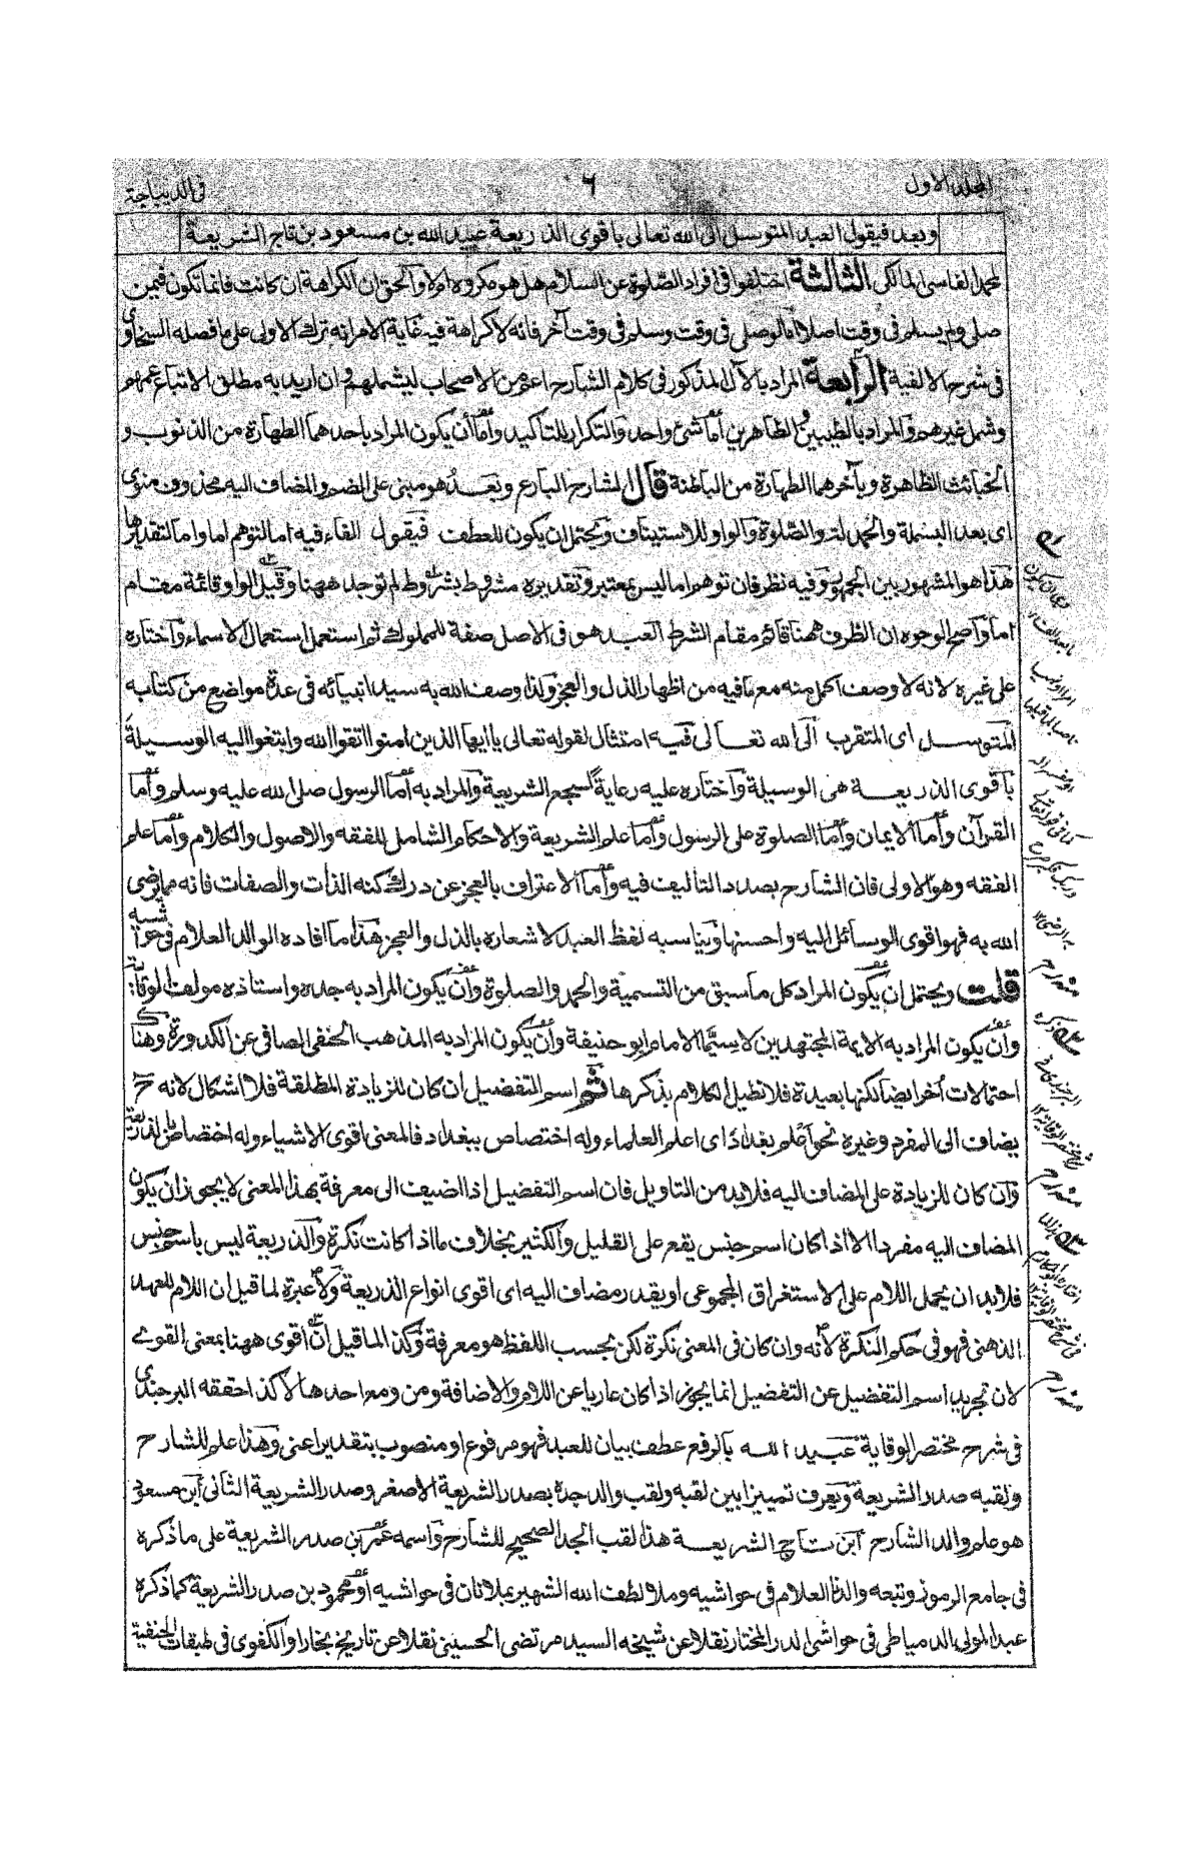 المجلد الاول
٦
فى الديباجة
وبعد فيقول العبد المتوسل الى الله تعالى باقوى الذريعة عبيد الله بن مسعود بن تاج الشريعة
محمد الفاسى المالكى الثالثة اختلفوا فى افراد الصلوة عن السلام هل هو مكروه ام لا والحق ان الكراهة ان كانت فانما تكون فيمن
صلى ولم يسلم فى وقت اصلا اما لو صلى فى وقت وسلم فى وقت آخر فانه لا كراهة فيه غاية الامر انه ترك الاولى على ما فصله السخاوى
فى شرح الالفية الرابعة المراد بالآل المذكور فى كلام الشارح اعم من الاصحاب ليشملهم وان اريد به مطلق الاتباع عمهم
وشمل غيرهم والمراد بالطيبين والطاهرين أما شئ واحد والتكرار للتاكيد وأما أن يكون المراد باحدهما الطهارة من الذنوب و
الخبائث الظاهرة وبآخرهما الطهارة من الباطنة قال الشارح البارع وبعد هو مبنى على الضم والمضاف اليه محذوف منوى
اى بعد البسملة والحمد لة والصلوة والواو للاستيناف ويحتمل ان يكون للعطف فيقول الفاء فيه اما لتوهم اما واما لتقديرها
هذا هو المشهور بين الجمهور وفيه نظر فان توهم اما ليس بمعتبر وتقديره مشروط بشروط لم توجد ههنا وقيل الواو قائمة مقام
اما واصح الوجوه ان الظرف ههنا قائم مقام الشرط العبد هو فى الاصل صفة للمملوك ثم استعمل استعمال الاسماء واختاره
على غيره لانه لا وصف اكمل منه مع ما فيه من اظهار الذل والعجز ولذا وصف الله به سيد انبيائه فى عدة مواضع من كتابه
المتوسل اى المتقرب الى الله تعالى فيه امتثال لقوله تعالى يا ايها الذين امنوا اتقوا الله وابتغوا اليه الوسيلة
باقوى الذريعة هى الوسيلة واختاره عليه رعاية لسجع الشريعة والمراد به أما الرسول صلى الله عليه وسلم وأما
القرآن وأما الايمان وأما الصلوة على الرسول وأما علم الشريعة والاحكام الشامل للفقه والاصول والكلام وأما علم
الفقه وهو الاولى فان الشارح بصدد التاليف فيه وأما الاعتراف بالعجز عن درك كنه الذات والصفات فانه مما يرضى
الله به فهو اقوى الوسائل اليه واحسنها ويناسبه لفظ العبد لاشعاره بالذل والعجز هذا ما افاده الوالد العلام فى حواشيه
قلت ويحتمل ان يكون المراد كل ما سبق من التسمية والحمد والصلوة وأن يكون المراد به جده واستاذه مولف الوقاية
وأن يكون المراد به الايمة المجتهدين لا سيما الامام ابو حنيفة وأن يكون المراد به المذهب الحنفى الصافى عن الكدورة وهناك
احتمالات أخر ايضا لكنها بعيدة فلا نطيل الكلام بذكرها ثم اسم التفضيل ان كان للزيادة المطلقة فلا اشكال لانه ح
يضاف الى المفرد وغيره نحو اعلم بغداد اى اعلم العلماء وله اختصاص ببغداد فالمعنى اقوى الاشياء وله اختصاص بالذريعة
وان كان للزيادة على المضاف اليه فلا بد من التاويل فان اسم التفضيل اذا اضيف الى معرفة بهذا المعنى لا يجوز ان يكون
المضاف اليه مفردا الا اذا كان اسم جنس يقع على القليل والكثير بخلاف ما اذا كانت نكرة والذريعة ليس باسم جنس
فلا بد ان يحمل اللام على الاستغراق المجموعى او يقدر مضاف اليه اى اقوى انواع الذريعة ولا عبرة لما قيل ان اللام للعهد
الذهنى فهو فى حكم النكرة لأنه وان كان فى المعنى نكرة لكن بحسب اللفظ هو معرفة وكذا لما قيل أن اقوى ههنا بمعنى القوى
لان تجريد اسم التفضيل عن التفضيل انما يجوز اذا كان عاريا عن اللام والاضافة ومن ومع احدها لا كذا حققه البرجندى
فى شرح مختصر الوقاية عبيد الله بالرفع عطف بيان للعبد فهو مرفوع او منصوب بتقدير اعنى وهذا علم للشارح
ولقبه صدر الشريعة ويعرف تمييزا بين لقبه ولقب والد جدة بصدر الشريعة الاصغر وصدر الشريعة الثانى ابن مسعود
هو علم والد الشارح ابن تاج الشريعة هذا لقب الجد الصحيح للشارح واسمه عمر بن صدر الشريعة على ما ذكره
فى جامع الرموز وتبعه والدنا العلام فى حواشيه وملا لطف الله الشهير بملانان فى حواشيه او محمود بن صدر الشريعة كما ذكره
عبد المولى الدمياطى فى حواشى الدر المختار نقلا عن شيخه السيد مرتضى الحسينى نقلا عن تاريخ بخارا والكفوى فى طبقات الحنفية